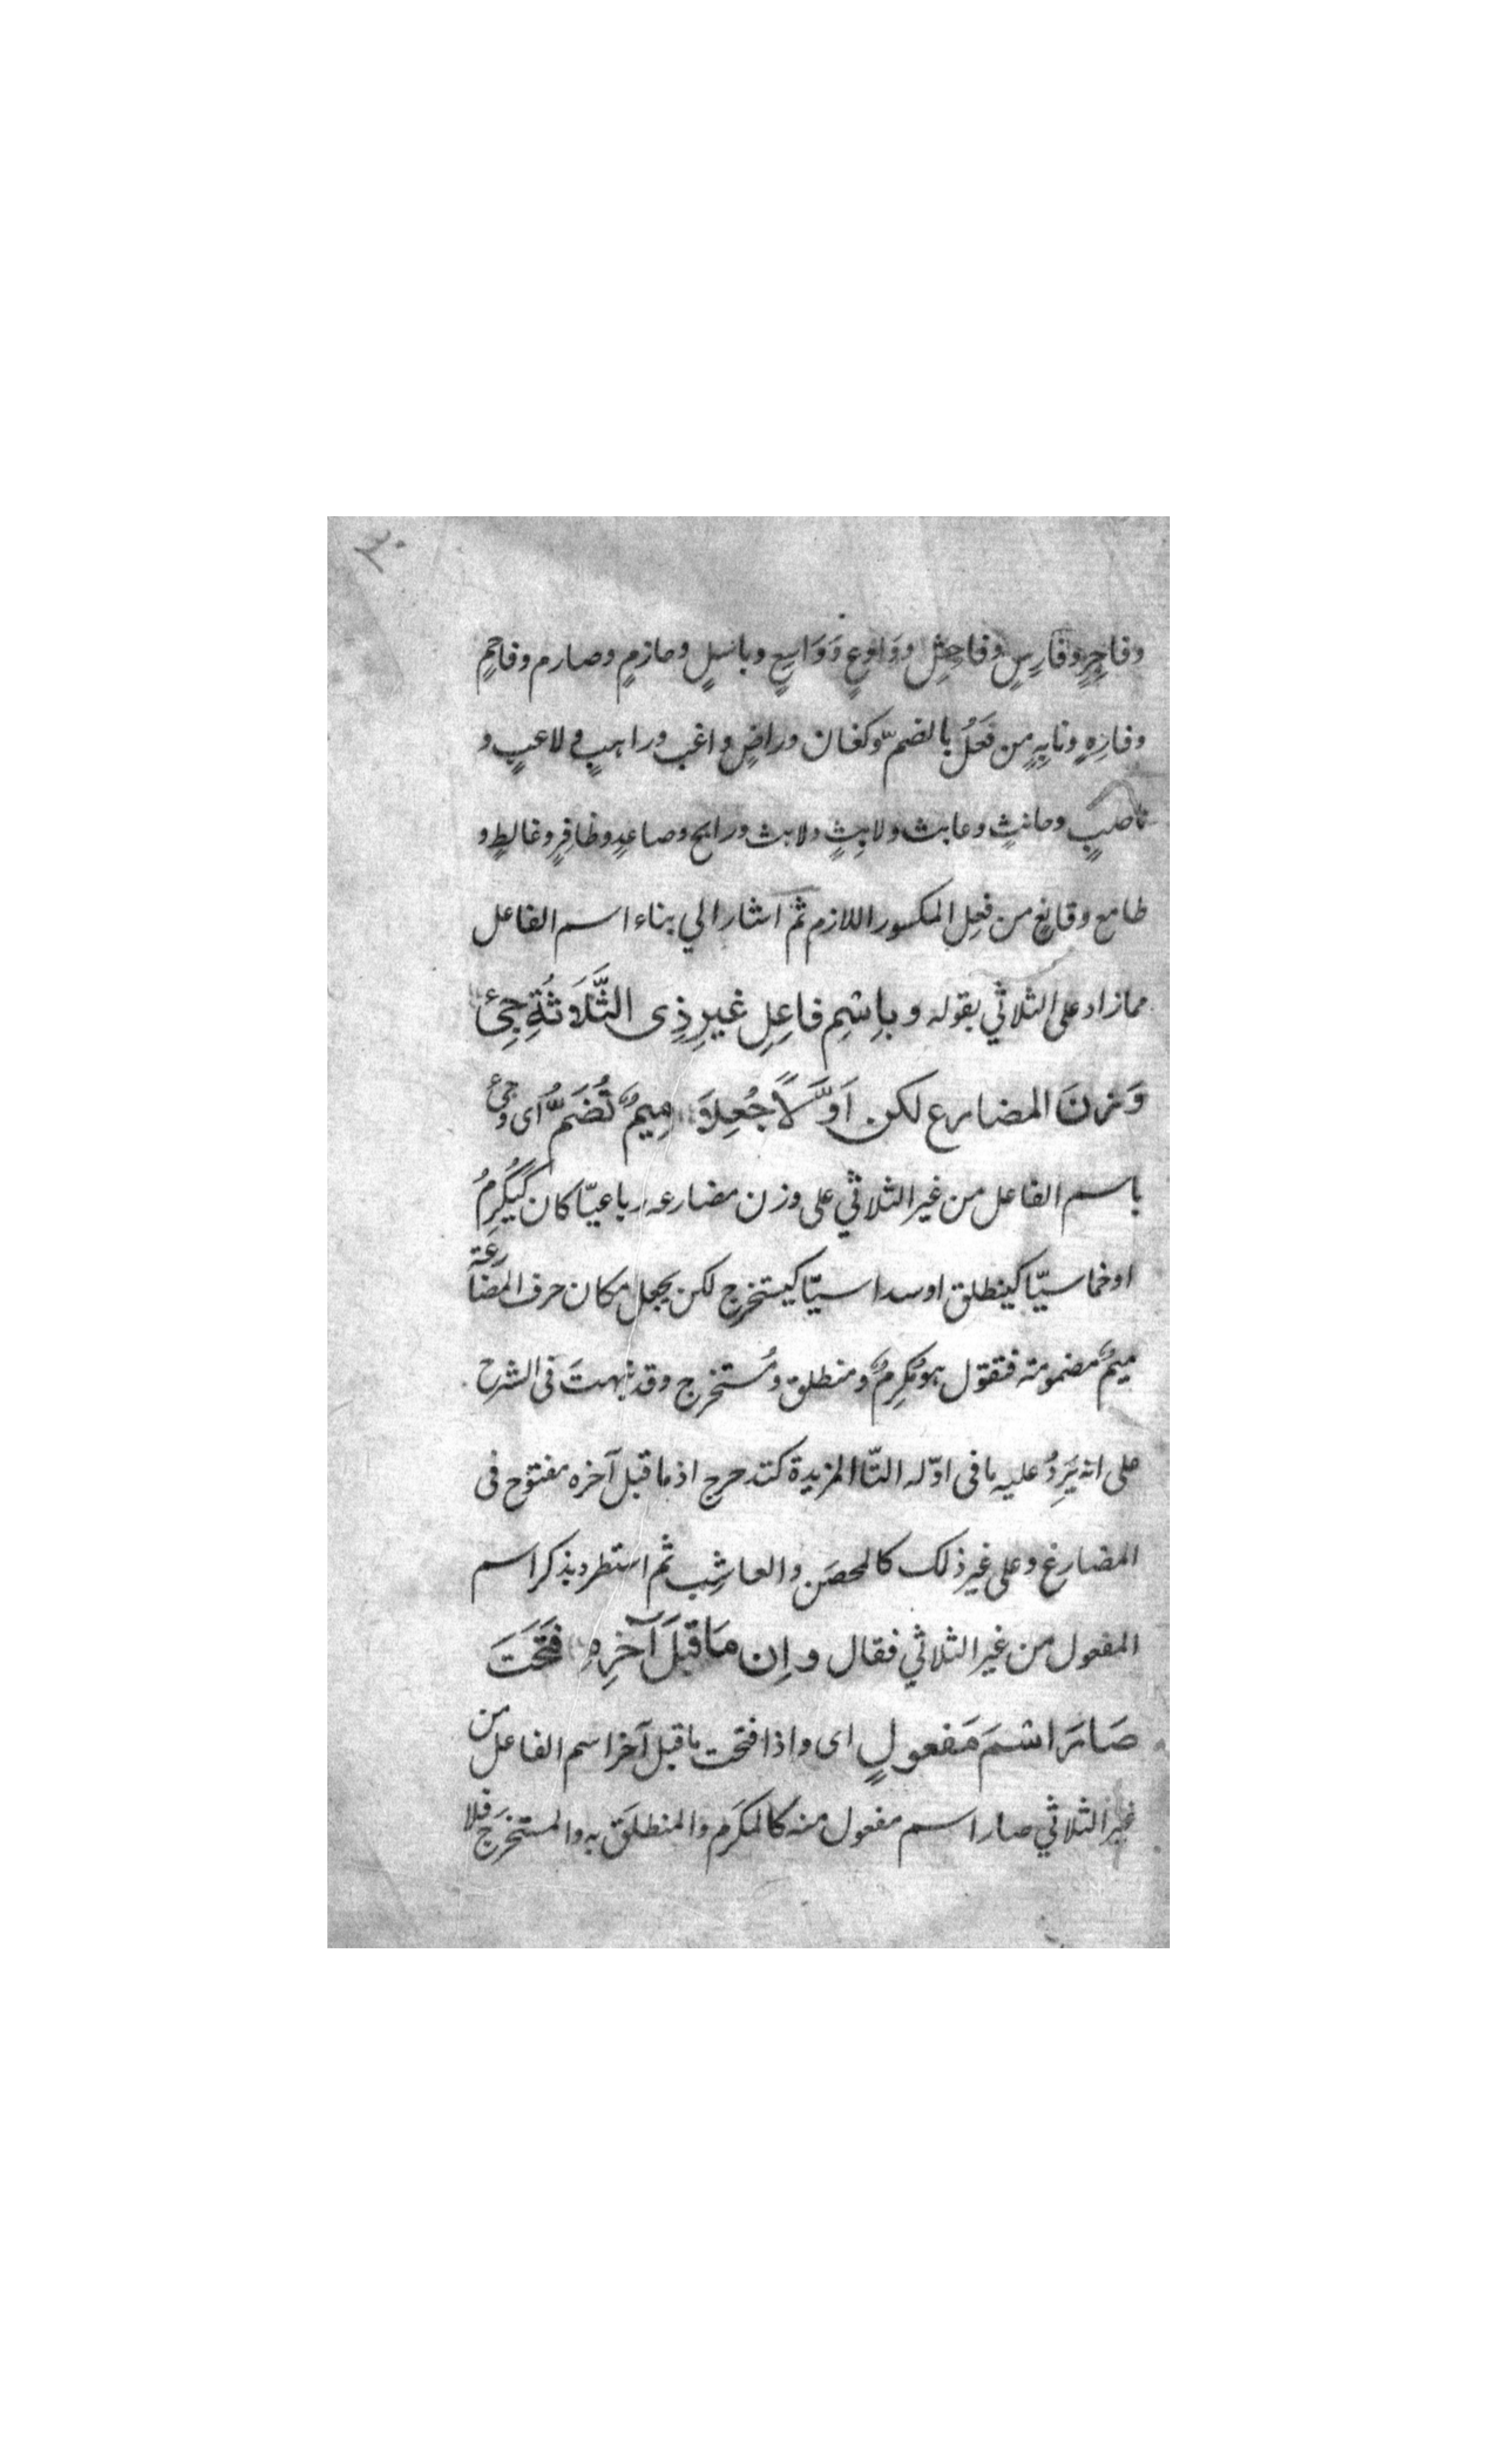 وفاجِرٍ وفارِسٍ وفاحِشٍ ووَادِعٍ ووَاسِعٍ وباسلٍ وحازمٍ وصارم وفاحمٍ
وفارِهٍ ونابِهٍ من فَعُلَ بالضم وكفان وراضٍ واغب وراهبٍ ولاعبٍ و
ناصبٍ وحانثٍ وعابث ولاهِثٍ ولابث ورابح وصاعدٍ وظافِرٍ وغالطٍ و
طامع وقانِعٍ من فعِل المكسور اللازم ثم اشار الي بناء اسم الفاعل
مما زاد على الثلاثي بقوله وباِسْمِ فاعِلِ غيرِ ذِى الثَّلَاثَةِ جِئ
وَزنَ المضارع لكن اَوَّلًا جُعِلاَ مِيمٌ تُضَمُّ اى وجئ
باسم الفاعل من غير الثلاثي على وزن مضارعه رباعيّا كان كَيُكرِمُ
او خماسيّا كينطلق او سداسيّا كيستخرج لكن يجعل مكان حرف المضارعة
ميمٌ مضمومة فتقول هو مُكرِمٌ ومنطلق ومُستخرج وقد نبهت فى الشرح
على انه يَرِدُ عليه ما فى اوّله التّا المزيدة كتدحرج اذ ما قبل آخره مفتوح فى
المضارع وعلى غير ذلك كالمحصَن والعاشِب ثم استطرد بذكر اسم
المفعول من غير الثلاثي فقال واِن مَا قبلَ آخرِهِ فَتَحْتَ
صَارَ اسْمَ مَفعولٍ اى واذا فتحت ما قبل آخر اسم الفاعل من
غير الثلاثي صار اسم مفعول منه كالمكرَم والمنطلَق به والمستخرَج فلا